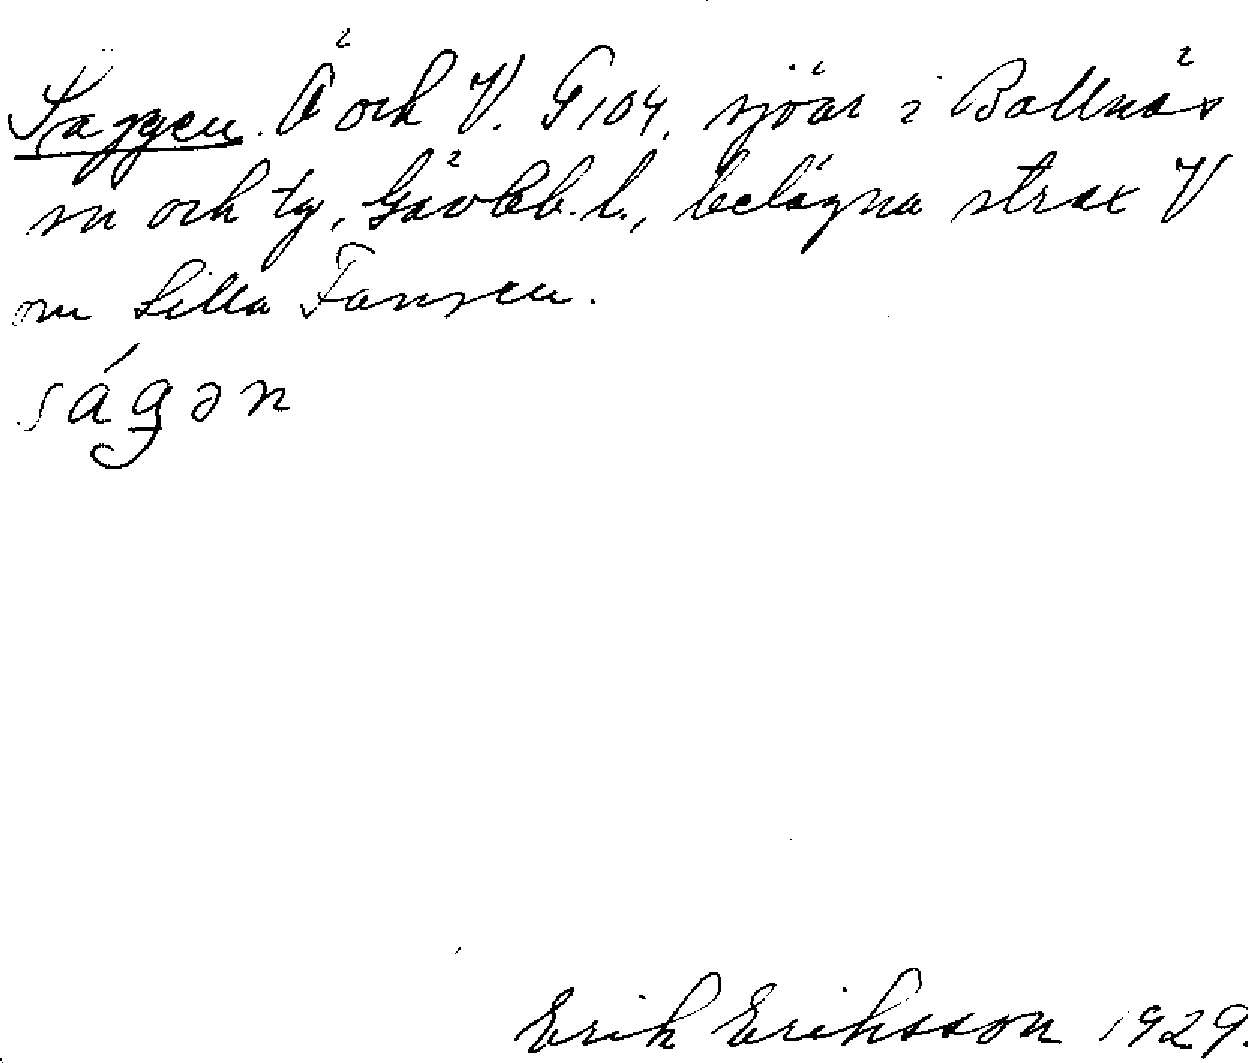 Säggen. Ö och V. G 104, sjöar i Bollnäs
sn och tg, Gävleb. l., belägna strax V
om Lilla Fansen.
ságən
Erik Eriksson 1929.